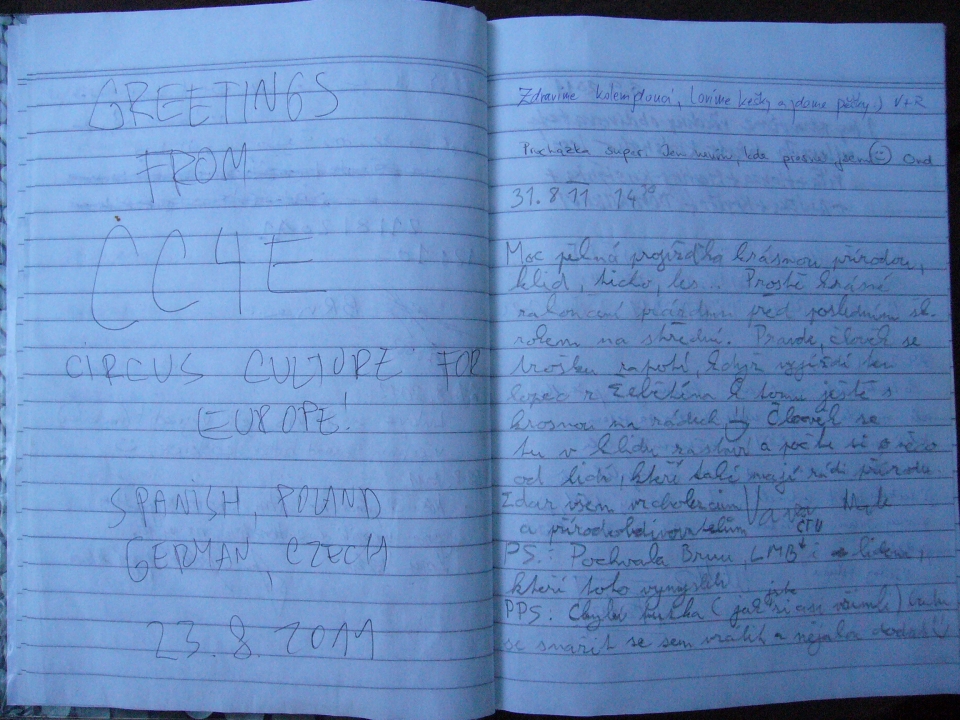 GREETINGS
FROM
CC4E
CIRCUS CULTURE FOR
EUROPE!
SPANISH, POLAND
GERMAN, CZECH
23.8.2011
Zdravíme kolemjdoucí, lovíme kešky a jdeme pěšky :) V+R
Procházka super! Jen nevím, kde přesně jsem ☺ Ond
31.8.11 14
Moc pěkná projížďka krásnou přírodou,
klid, ticho, les... Prostě krásné
zakončení prázdnin před posledním šk.
rokem na střední. Pravda, člověk se
trošku zapotí, když vyjíždí ten
kopec z Žebětína k tomu ještě s
krosnou na zádech. Člověk se
tu v klidu zastaví a počte si o něco
od lidí, kteří také mají rádi přírodu.
Zdar všem vrcholcům
a přírodoobdivovatelům
PS: Pochvala Brnu, LMB i lidem,
kteří toto vymysleli
PPS: Chybí tužka (jak si asi všimli) budu
se snažit se sem vrátit a nějakou dodat